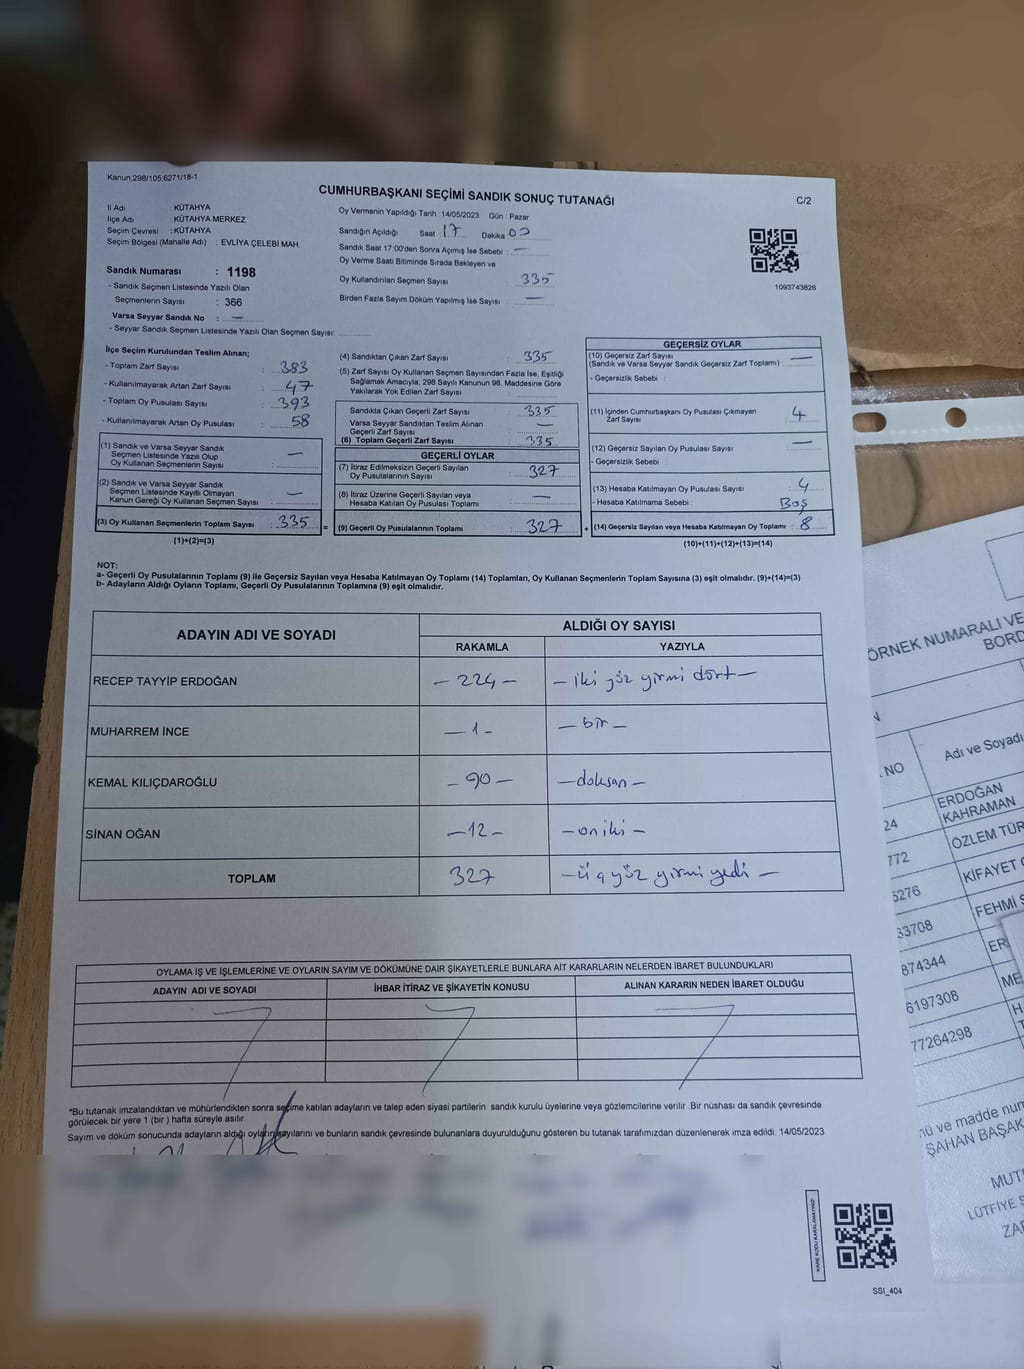 Kanun:298/105,6271/18-1
CUMHURBAŞKANI SEÇİMİ SANDIK SONUÇ TUTANAĞI
C/2
İl Adı : KÜTAHYA
İlçe Adı : KÜTAHYA MERKEZ
Seçim Çevresi : KÜTAHYA
Seçim Bölgesi (Mahalle Adı) : EVLİYA ÇELEBİ MAH.
Sandık Numarası : 1198
- Sandık Seçmen Listesinde Yazılı Olan
Seçmenlerin Sayısı : 366
Varsa Seyyar Sandık No : —
- Seyyar Sandık Seçmen Listesinde Yazılı Olan Seçmen Sayısı:
Oy Vermenin Yapıldığı Tarih : 14/05/2023 Gün : Pazar
Sandığın Açıldığı Saat 17 Dakika 00
Sandık Saat 17:00'den Sonra Açımış İse Sebebi : —
Oy Verme Saati Bitiminde Sırada Bekleyen ve
Oy Kullandırılan Seçmen Sayısı 335
Birden Fazla Sayım Döküm Yapılmış İse Sayısı : —
1093743826
İlçe Seçim Kurulundan Teslim Alınan;
- Toplam Zarf Sayısı : 383
- Kullanılmayarak Artan Zarf Sayısı : 47
- Toplam Oy Pusulası Sayısı : 393
- Kullanılmayarak Artan Oy Pusulası : 58
(1) Sandık ve Varsa Seyyar Sandık
Seçmen Listesinde Yazılı Olup
Oy Kullanan Seçmenlerin Sayısı : —
(2) Sandık ve Varsa Seyyar Sandık
Seçmen Listesinde Kayıtlı Olmayan
Kanun Gereği Oy Kullanan Seçmen Sayısı : —
(3) Oy Kullanan Seçmenlerin Toplam Sayısı : 335 =
(1)+(2)=(3)
(4) Sandıktan Çıkan Zarf Sayısı : 335
(5) Zarf Sayısı Oy Kullanan Seçmen Sayısından Fazla İse, Eşitliği
Sağlamak Amacıyla, 298 Sayılı Kanunun 98. Maddesine Göre
Yakılarak Yok Edilen Zarf Sayısı :
Sandıkta Çıkan Geçerli Zarf Sayısı : 335
Varsa Seyyar Sandıktan Teslim Alınan
Geçerli Zarf Sayısı : —
(6) Toplam Geçerli Zarf Sayısı : 335
GEÇERLİ OYLAR
(7) İtiraz Edilmeksizin Geçerli Sayılan
Oy Pusulalarının Sayısı : 327
(8) İtiraz Üzerine Geçerli Sayılan veya
Hesaba Katılan Oy Pusulası Toplamı : —
(9) Geçerli Oy Pusulalarının Toplamı : 327 +
GEÇERSİZ OYLAR
(10) Geçersiz Zarf Sayısı
(Sandık ve Varsa Seyyar Sandık Geçersiz Zarf Toplamı) : —
- Geçersizlik Sebebi :
(11) İçinden Cumhurbaşkanı Oy Pusulası Çıkmayan
Zarf Sayısı : 4
(12) Geçersiz Sayılan Oy Pusulası Sayısı : —
- Geçersizlik Sebebi :
(13) Hesaba Katılmayan Oy Pusulası Sayısı : 4
- Hesaba Katılmama Sebebi : Boş
(14) Geçersiz Sayılan veya Hesaba Katılmayan Oy Toplamı : 8
(10)+(11)+(12)+(13)=(14)
NOT:
a- Geçerli Oy Pusulalarının Toplamı (9) ile Geçersiz Sayılan veya Hesaba Katılmayan Oy Toplamı (14) Toplamları, Oy Kullanan Seçmenlerin Toplam Sayısına (3) eşit olmalıdır. (9)+(14)=(3)
b- Adayların Aldığı Oyların Toplamı, Geçerli Oy Pusulalarının Toplamına (9) eşit olmalıdır.
ADAYIN ADI VE SOYADI
ALDIĞI OY SAYISI
RAKAMLA YAZIYLA
RECEP TAYYİP ERDOĞAN – 224 – – iki yüz yirmi dört –
MUHARREM İNCE – 1 – – bir –
KEMAL KILIÇDAROĞLU – 90 – – doksan –
SİNAN OĞAN – 12 – – on iki –
TOPLAM 327 – üç yüz yirmi yedi –
OYLAMA İŞ VE İŞLEMLERİNE VE OYLARIN SAYIM VE DÖKÜMÜNE DAİR ŞİKAYETLERLE BUNLARA AİT KARARLARIN NELERDEN İBARET BULUNDUKLARI
ADAYIN ADI VE SOYADI İHBAR İTİRAZ VE ŞİKAYETİN KONUSU ALINAN KARARIN NEDEN İBARET OLDUĞU
*Bu tutanak imzalandıktan ve mühürlendikten sonra seçime katılan adayların ve talep eden siyasi partilerin sandık kurulu üyelerine veya gözlemcilerine verilir. Bir nüshası da sandık çevresinde
görülecek bir yere 1 (bir) hafta süreyle asılır.
Sayım ve döküm sonucunda adayların aldığı oyların sayılarını ve bunların sandık çevresinde bulunanlara duyurulduğunu gösteren bu tutanak tarafımızdan düzenlenerek imza edildi. 14/05/2023
KARE KODU KARALAMAYINIZ!
SSI_404
ÖRNEK NUMARALI VE
BORD
NO Adı ve Soyadı
24 ERDOĞAN
KAHRAMAN
772 ÖZLEM TÜR
5276 KIFAYET
33708 FEHMİ
874344 ER
6197308 ME
77264298
nü ve madde num
ŞAHAN BAŞAK
LÜTFİYE